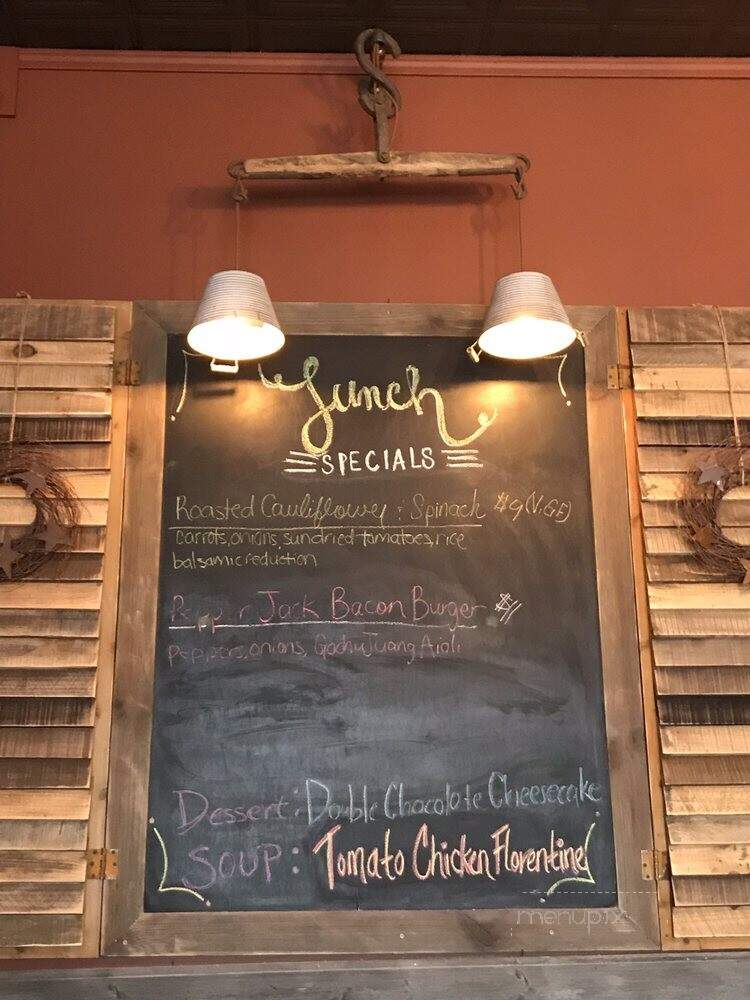 Lunch
SPECIALS
Roasted Cauliflower : Spinach $9 (V, GF)
carrots, onions, sundried tomatoes, rice
balsamic reduction
Pepper Jack Bacon Burger $11
Peppers, onions, GochuJuang Aioli
Dessert: Double Chocolate Cheesecake
SOUP: Tomato Chicken Florentine
menupix